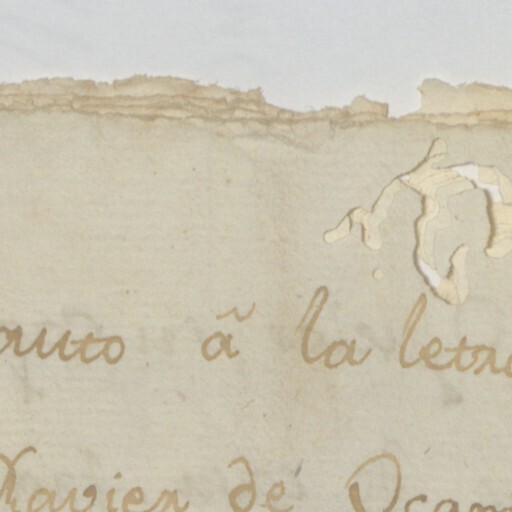 auto ã la letra
Xavier dé Ocam